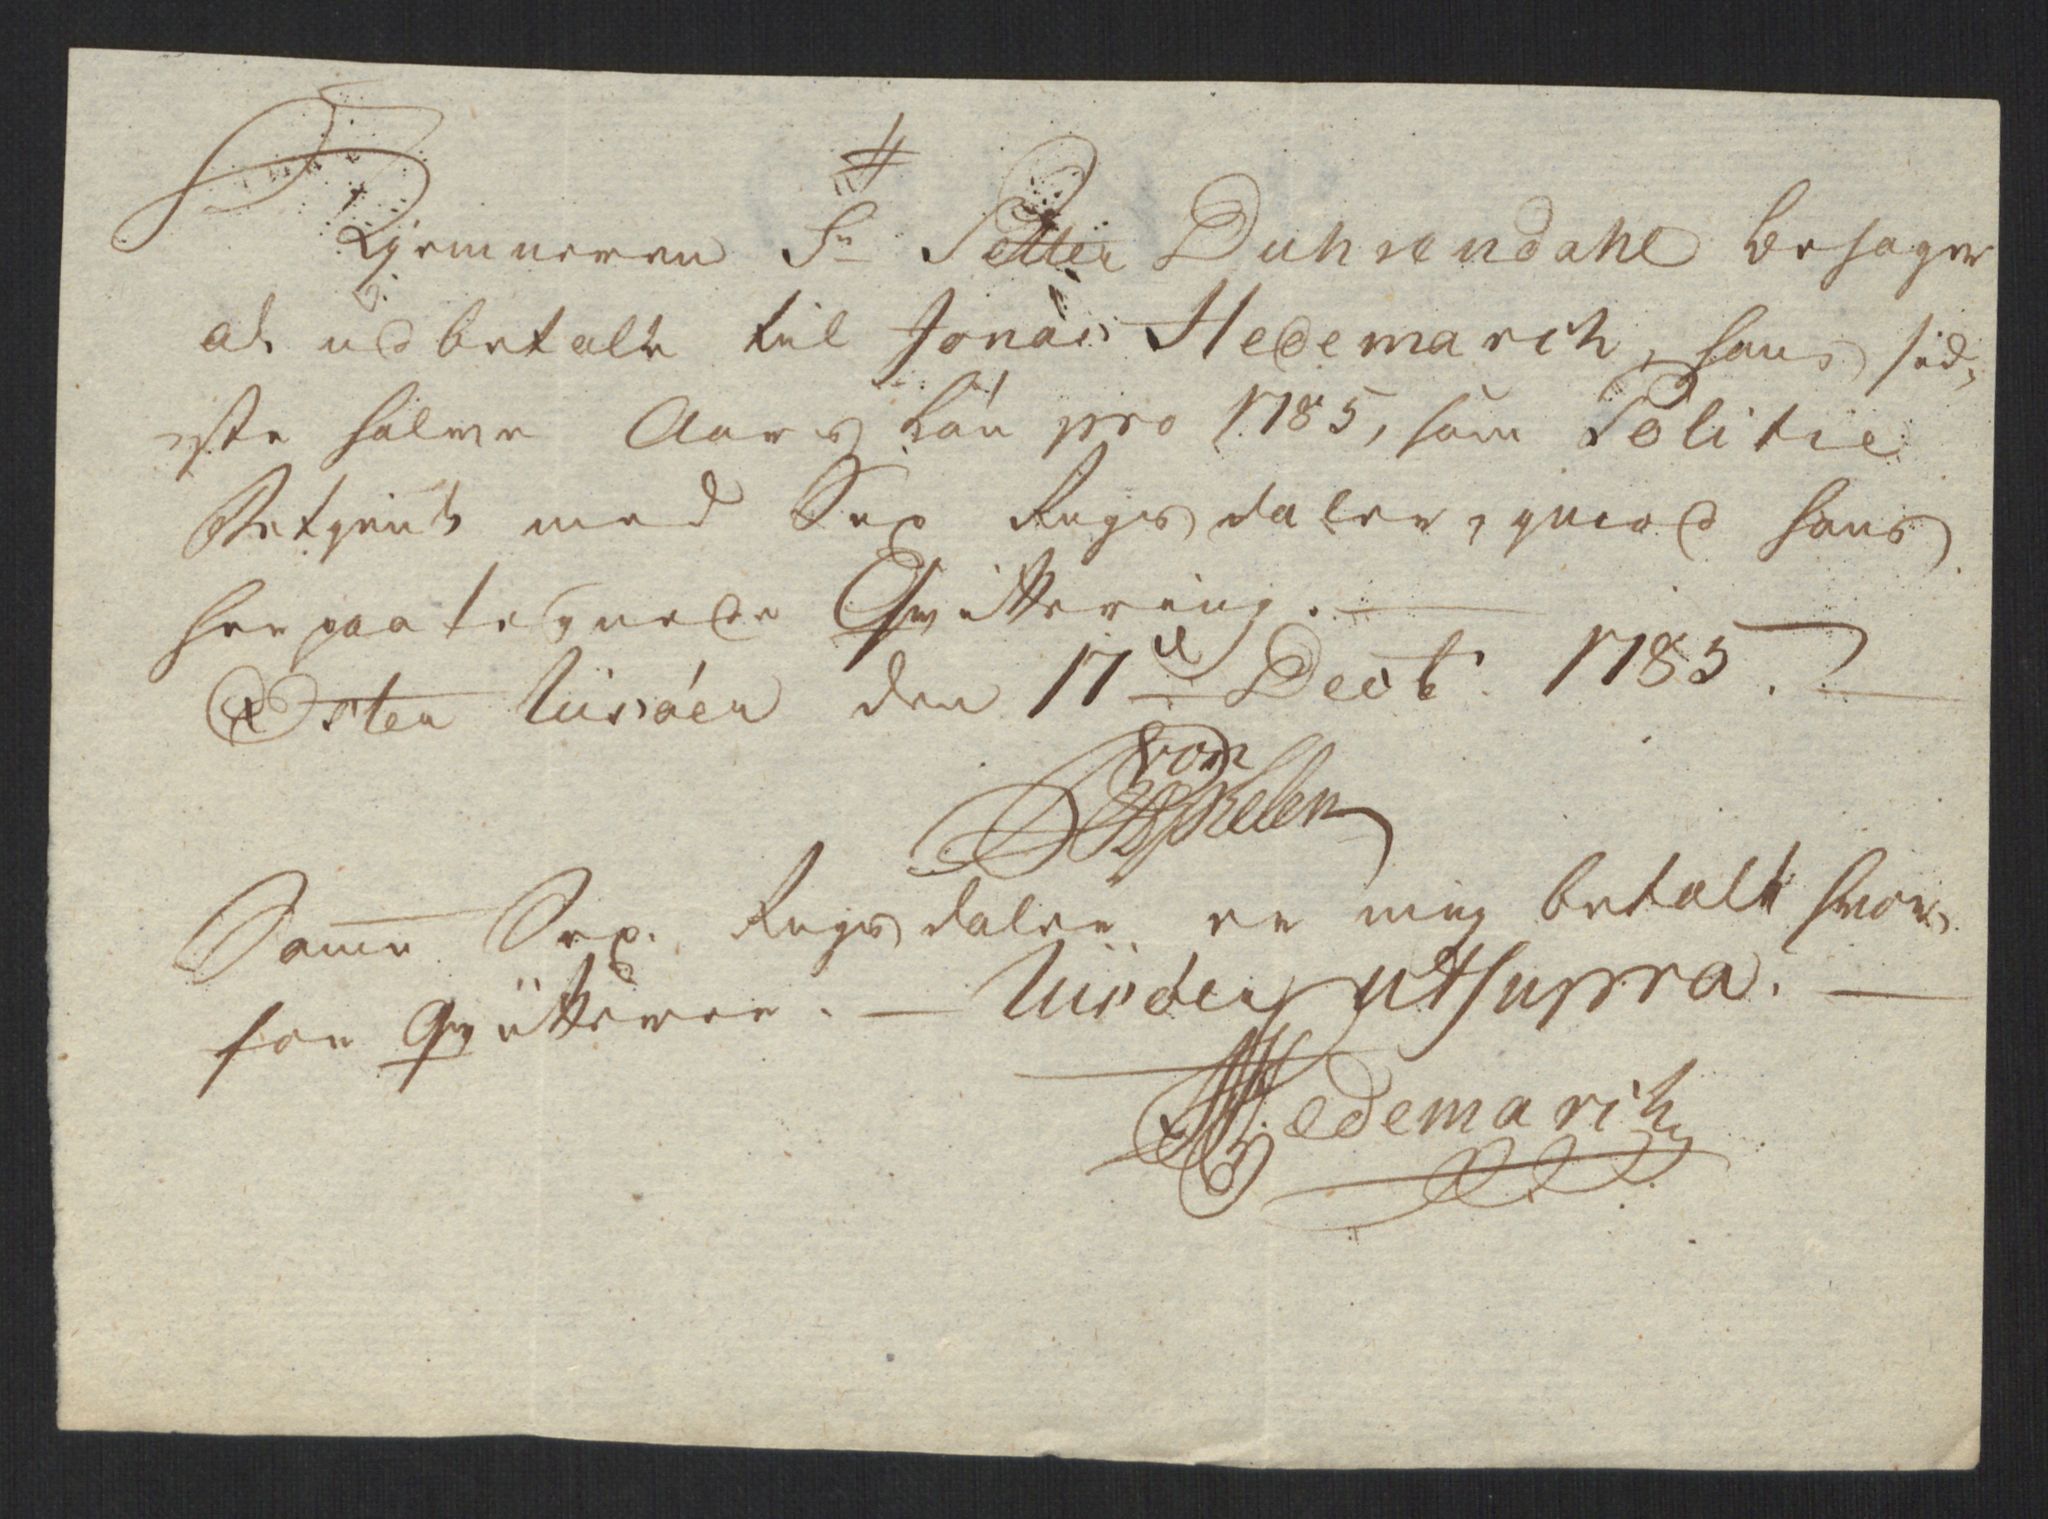 Kjemneren Sr Petter Duhrendahl behager
at udbetale til Jonas Hedemarch, hans sid,,
,,ste halve Aars Lön pro 1785, som Politie
Betjent med Sex Rigsdaler, imod hans
her paategnede Qvittering.
Östen Riisöer den 17de Decbr. 1785.
von
Samme Sex Rigsdaler er mig betalt hvor,,
for Qvitterer. — Riisöer ut Supra. —
Hedemarch